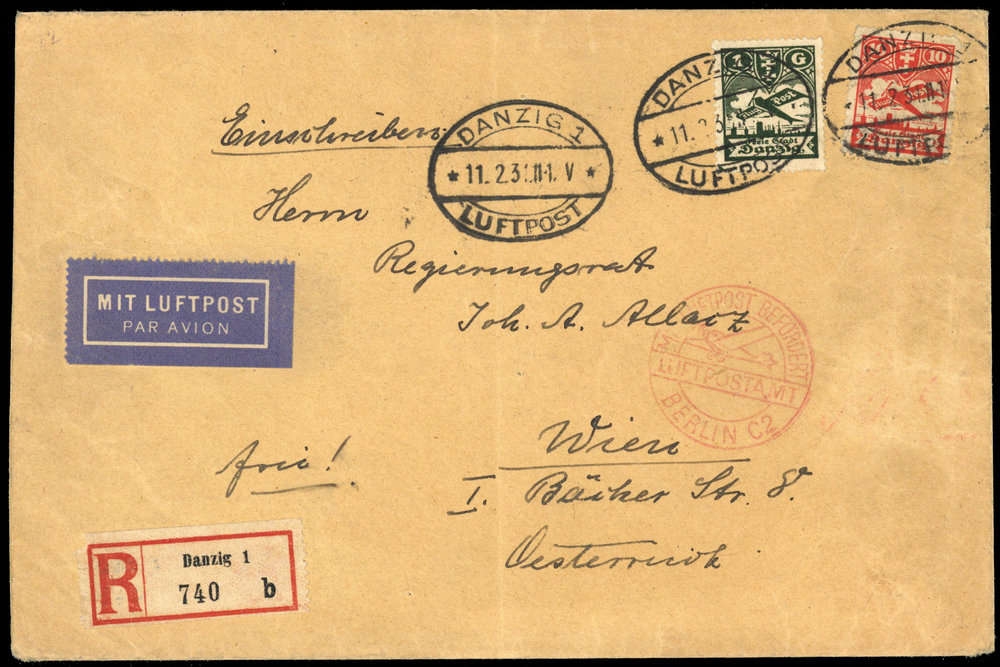 Einschreiben
Herrn
Regierungsrat
Joh. A. Allacz
Wien
I. Bäcker Str. 8.
Oesterreich
frei!
MIT LUFTPOST
PAR AVION
R
Danzig 1
740 b
DANZIG 1
* 11.2.31.11-1. V *
LUFTPOST
DANZIG
* 11.2.3
LUFTPO
1 G
Post
Freie Stadt
Danzig
DANZIG 1
LUFTP
10
Post
LUFTPOST BEFÖRDERT
LUFTPOSTAMT
BERLIN C2